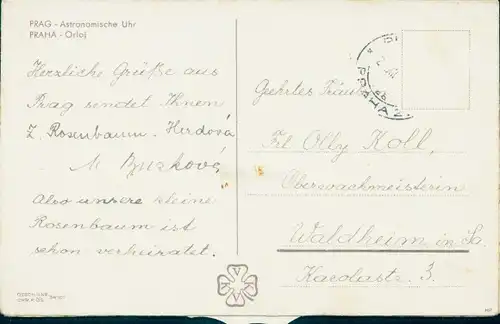 PRAG - Astronomische Uhr
PRAHA - Orloj
Herzliche Grüße aus
Prag sendet Ihnen
Z. Rosenbaum - Herdová
M Buzková
Also unsere kleine
Rosenbaum ist
schon verheiratet.
Geehrtes Fräul
PRAHA
Frl Olly Koll,
Oberwachmeisterin
Waldheim in Sa
Karolastr. 3.